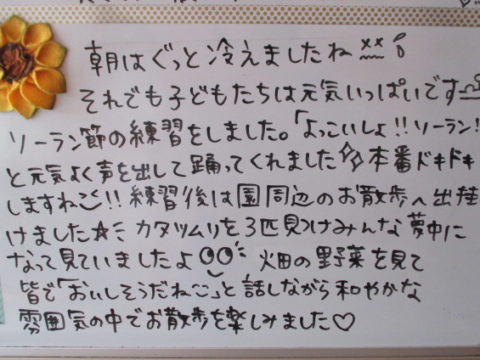 朝はぐっと冷えましたね
それでも子どもたちは元気いっぱいです
ソーラン節の練習をしました。「よっこいしょ!!ソーラン!
と元気よく声を出して踊ってくれました 本番ドキドキ
しますね!!練習後は園周辺のお散歩へ出掛
けました☆ カタツムリを3匹見つけみんな夢中に
なって見ていましたよ 畑の野菜を見て
皆で「おいしそうだね」と話しながら和やかな
雰囲気の中でお散歩を楽しみました♡